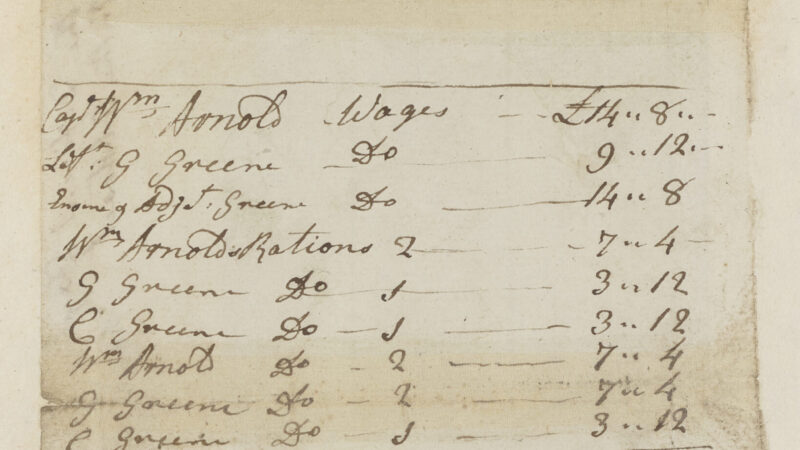 Capt Wm Arnold Wages - - £14 " 8 " -
Lett. G Greene Do 9 " 12 " -
& Adjt. Greene Do 14 " 8
Wm Arnolds Rations 2 - 7 " 4 -
G Greene Do 1 3 " 12
C Greene Do - 1 3 " 12
Wm Arnold Do - 2 7 " 4
G Greene Do - 2 7 " 4
C Greene Do - 1 3 " 12